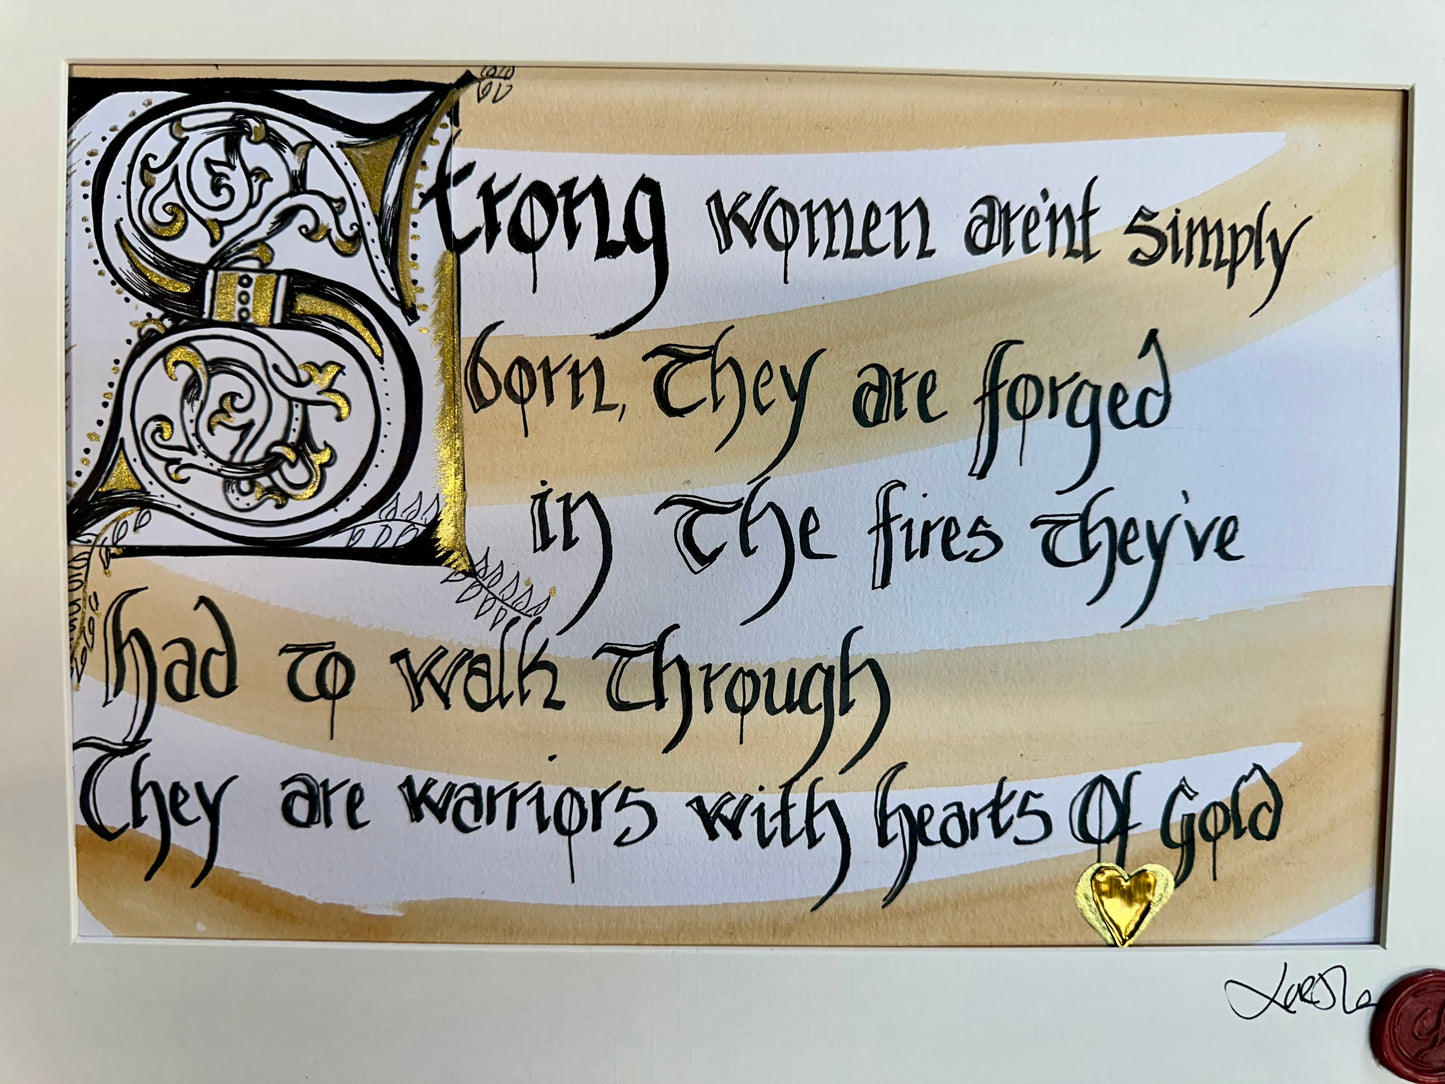 Strong women are'nt simply
born, They are forged
in The fires They've
had To walk Through
They are warriors with hearts Of Gold